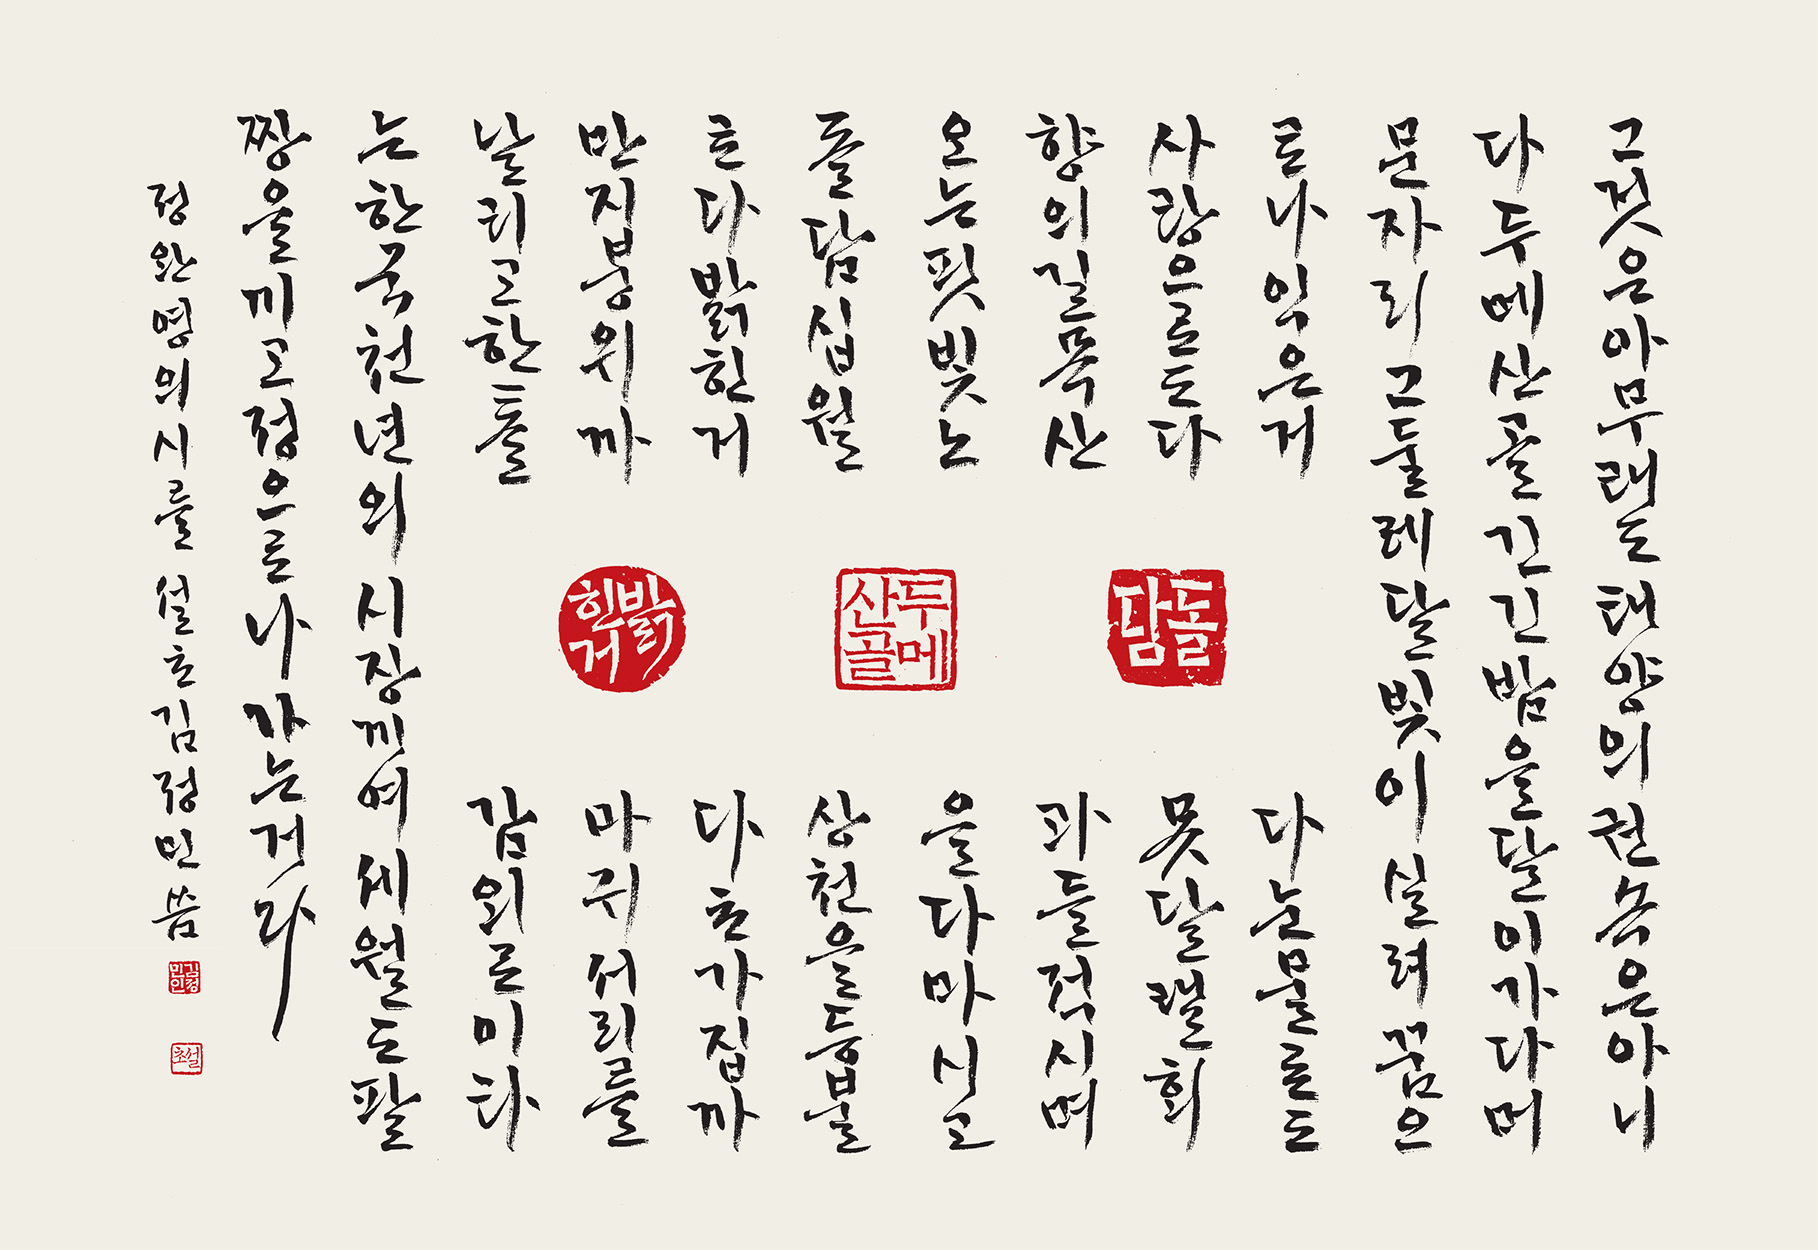 그것은아무래도태양의권속은아니
다두메산골긴긴밤을달이가다머
문자리그둘레달빛이실려꿈으
로나익은거 다눈물로도
사랑으로도다 못달랠회
향의길목산 과들적시며
오는핏빛노 을다마시고
돌담십월 상천을등불
로다밝힌거 다초가집까
만지붕위까 마귀서리를
날리고한톨 감외로미타
는한국천년의시장끼여세월도팔
짱을끼고정으로나가는거라
정완영의시를 설초김정민씀
돌담
두메산골
밝힌거
김정민인
설초